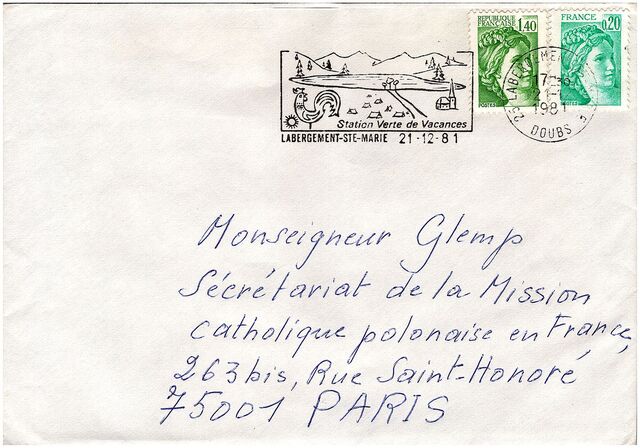 REPUBLIQUE
FRANÇAISE
1,40
FRANCE
0,20
Station Verte de Vacances
LABERGEMENT-STE-MARIE 21-12-81
21-12
1981
DOUBS
Monseigneur Glemp
Sécrétariat de la Mission
catholique polonaise en France,
263bis, Rue Saint-Honoré
75001 PARIS